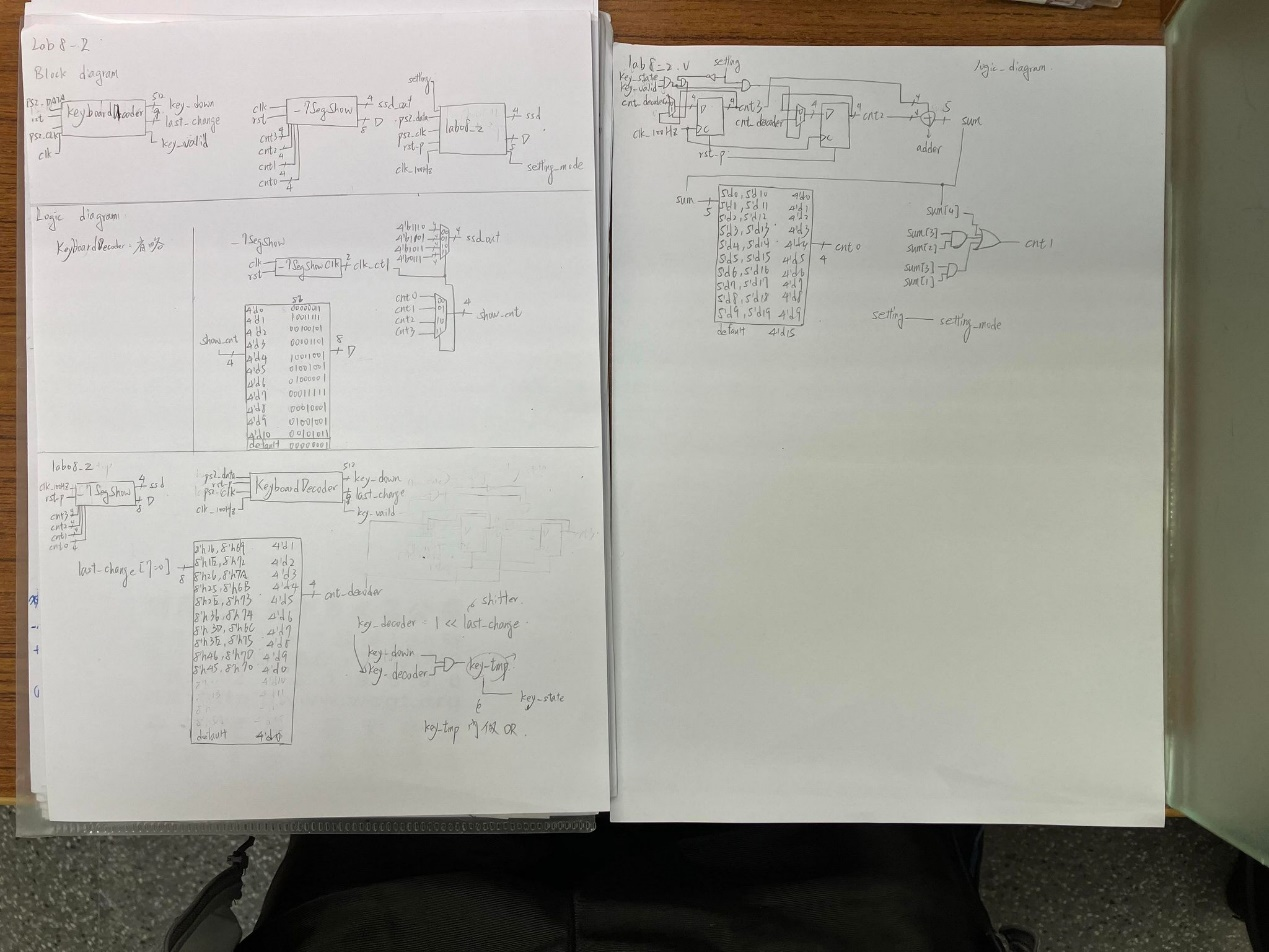 Lab 8-2
Block diagram
PS2_DATA
rst
PS2_CLK
clk
KeyboardDecoder
512
key_down
9
last_change
key_valid
clk
rst
cnt3 4
cnt2 4
cnt1 4
cnt0 4
_7SegShow
4 ssd_out
8 D
setting
ps2_data
ps2_clk
rst_p
clk_100Hz
lab08_2
4 ssd
D
8
setting_mode
Logic diagram
KeyboardDecoder = 省略
_7SegShow
clk
rst
_7SegShowClk
2 clk_ctl
4'b1110
4'b1101
4'b1011
4'b0111
4 ssd_out
cnt0
cnt1
cnt2
cnt3
4 show_cnt
show_cnt
4
4'd0
4'd1
4'd2
4'd3
4'd4
4'd5
4'd6
4'd7
4'd8
4'd9
4'd10
default
8 D
lab08_2
clk_100Hz
rst_p
cnt3 4
cnt2 4
cnt1 4
cnt0 4
_7SegShow
4 ssd
8 D
ps2_data
rst_p
ps2_clk
clk_100Hz
KeyboardDecoder
512
key_down
9
last_change
key_vaild
last_change [7:0] 8
8'h16, 8'h69 4'd1
8'h1E, 8'h72 4'd2
8'h26, 8'h7A 4'd3
8'h25, 8'h6B 4'd4
8'h2E, 8'h73 4'd5
8'h36, 8'h74 4'd6
8'h3D, 8'h6C 4'd7
8'h3E, 8'h75 4'd8
8'h46, 8'h7D 4'd9
8'h45, 8'h70 4'd0
default
4 cnt_decoder
shifter.
key_decoder = 1 << last_change.
key_down
key_decoder
key_tmp
key_state
key_tmp 內做 OR.
lab8-2.v
logic_diagram.
setting
key_state
key_valid
cnt_decoder
clk_100Hz
D
C
4 cnt3
cnt_decoder
D
C
4 cnt2
rst_p
4
4
5
sum
adder
sum
5
5'd0, 5'd10 4'd0
5'd1, 5'd11 4'd1
5'd2, 5'd12 4'd2
5'd3, 5'd13 4'd3
5'd4, 5'd14 4'd4
5'd5, 5'd15 4'd5
5'd6, 5'd16 4'd6
5'd7, 5'd17 4'd7
5'd8, 5'd18 4'd8
5'd9, 5'd19 4'd9
default 4'd15
cnt0
4
sum[4]
sum[3]
sum[2]
sum[3]
sum[1]
cnt1
setting setting_mode